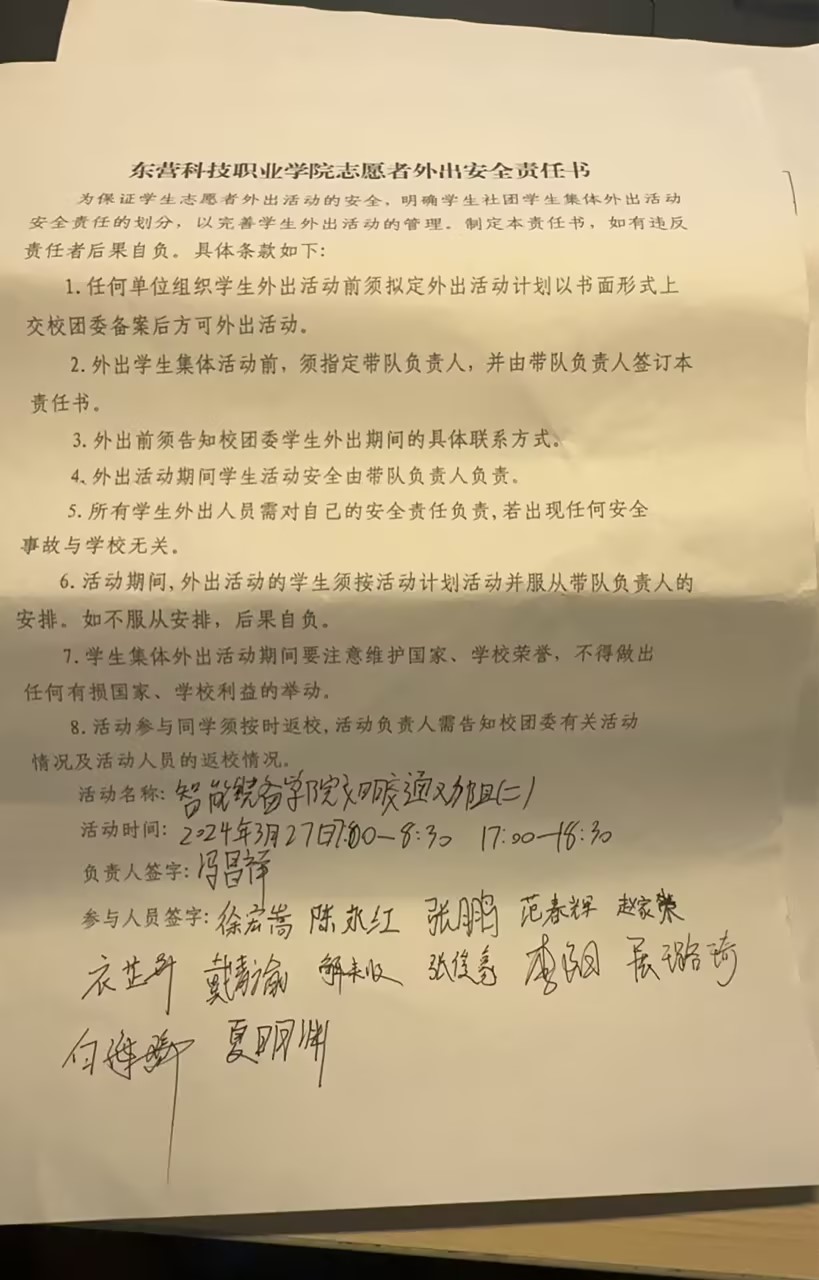 东营科技职业学院志愿者外出安全责任书
为保证学生志愿者外出活动的安全，明确学生社团学生集体外出活动
安全责任的划分，以完善学生外出活动的管理。制定本责任书，如有违反
责任者后果自负。具体条款如下：
1.任何单位组织学生外出活动前须拟定外出活动计划以书面形式上
交校团委备案后方可外出活动。
2.外出学生集体活动前，须指定带队负责人，并由带队负责人签订本
责任书。
3.外出前须告知校团委学生外出期间的具体联系方式。
4.外出活动期间学生活动安全由带队负责人负责。
5.所有学生外出人员需对自己的安全责任负责,若出现任何安全
事故与学校无关。
6.活动期间,外出活动的学生须按活动计划活动并服从带队负责人的
安排。如不服从安排，后果自负。
7.学生集体外出活动期间要注意维护国家、学校荣誉，不得做出
任何有损国家、学校利益的举动。
8.活动参与同学须按时返校,活动负责人需告知校团委有关活动
情况及活动人员的返校情况。
活动名称：智能装备学院文明交通义务(二)
活动时间：2024年3月27日7:00-8:30 17:00-18:30
负责人签字：冯昌祥
参与人员签字：徐宏嵩 陈永红 张鹏 范春辉 赵家荣
戴嘉瑜 张俊豪
夏明渊